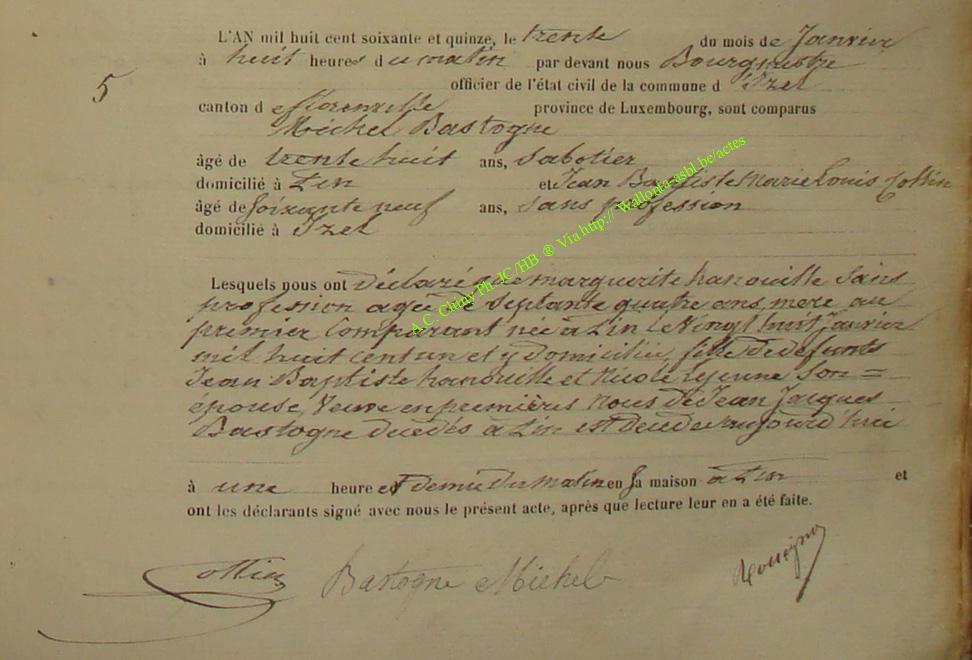 L'AN mil huit cent soixante et quinze, le trente du mois de Janvier
à huit heures du matin par devant nous Bourgmestre
5
officier de l'état civil de la commune d'Izel
canton de florenville province de Luxembourg, sont comparus
Michel Bastogne
âgé de trente huit ans, Sabotier
domicilié à Pin et Jean Baptiste Marie Louis Collin
âgé de soixante neuf ans, sans profession
domicilié à Izel
Lesquels nous ont déclaré que marguerite hanouille Sans
profession agée de septante quatre ans, mere au
premier Comparant née à Pin le Vingt huit Janvier
mil huit cent un et y domiciliée, fille de defunts
Jean Baptiste hanouille et Nicole lejeune Son =
épouse, Veuve en premières Nous de Jean Jacques
Bastogne decedés a Pin est decedée aujourd'hui
à une heure et demie du Matin en sa maison à Pin et
ont les déclarants signé avec nous le présent acte, après que lecture leur en a été faite.
Collin Bastogne Michel
A.C. Chiny Ph. JC/HB ® Via http:// Wallonia-asbl.be/actes